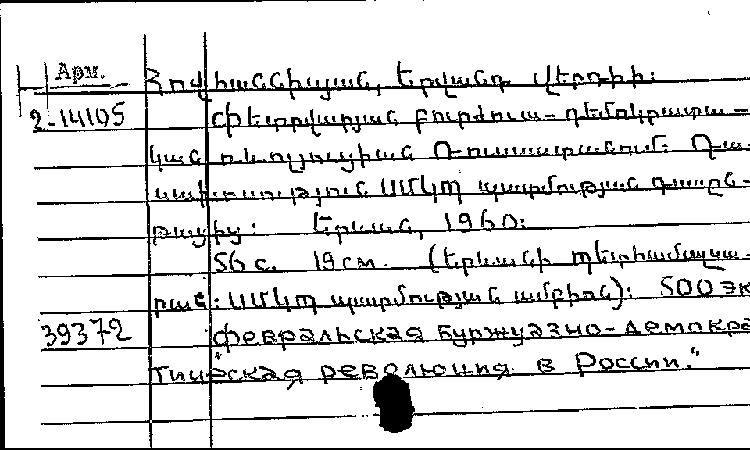 Арм.
Հովհաննիսյան, Երվանդ Վերդիի:
2-14105
Փետրվարյան բուրժուա-դեմոկրատա-
կան ռևոլյուցիան Ռուսաստանում: Դա-
սախոսություն ՍՄԿՊ պատմության դասըն-
թացից: Երևան, 1960:
56 с. 19 см. (Երևանի պետհամալսա-
րան: ՍՄԿՊ պատմության ամբիոն): 500 эк
39372
"Февральская буржуазно-демокра
тическая революция в России."